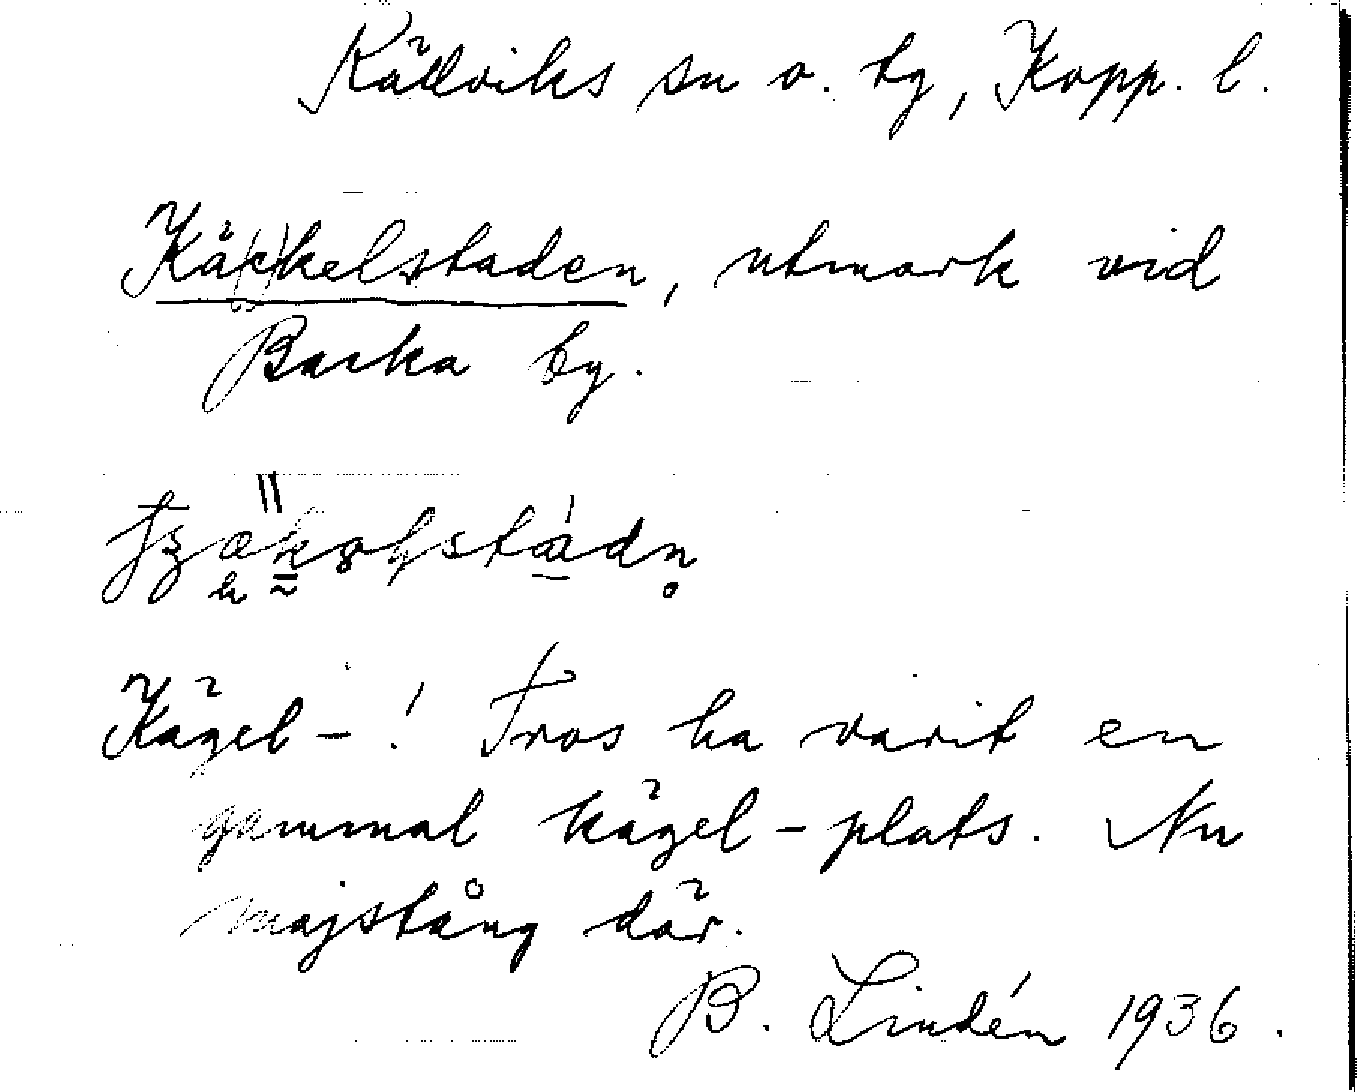 Källviks sn o. by, Kopp. l.
Kä(k)kelstaden, utmark vid
Backa by.
Kägel-! Tros ha varit en
gammal kägel-plats. Nu
majstång där.
B. Lindén 1936.